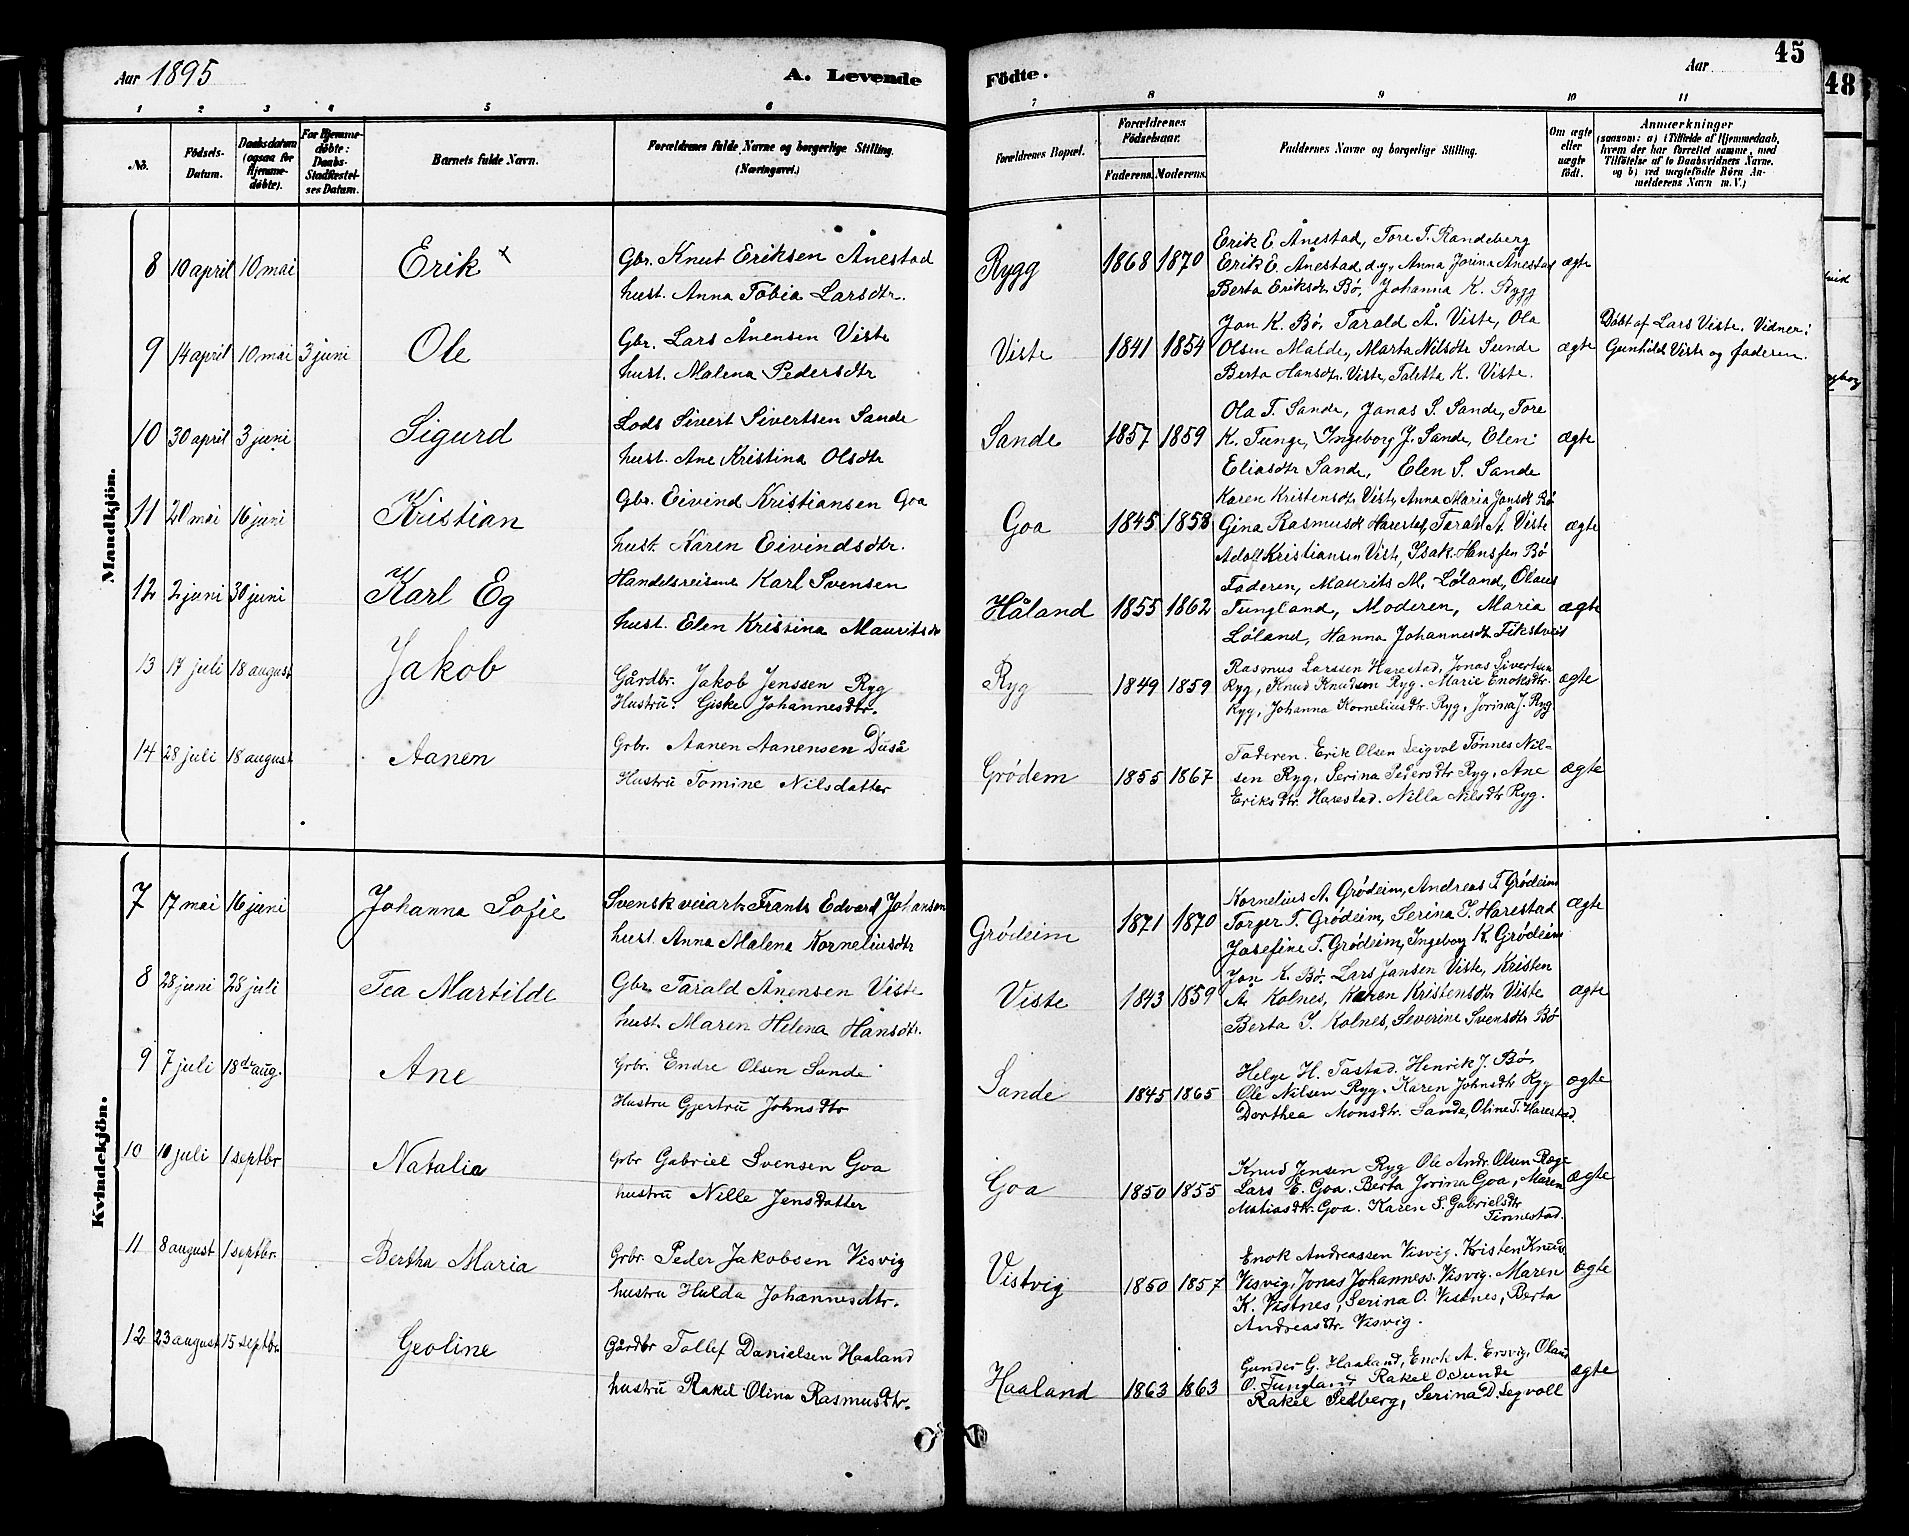 Aar 1895
A. Levende
Födte.
Aar
45
48
1 2 3 4 5 6 7 8 9 10 11
No.
Födsels-Datum.
Daabsdatum (ogsaa for Hjemme-døbte).
For Hjemme-døbte: Daabs-Stadfæstel-ses Datum.
Barnets fulde Navn.
Forældrenes fulde Navne og borgerlige Stilling. (Næringsvei.)
Forældrenes Bopæl.
Forældrenes Födselsaar.
Faderens. Moderens.
Faddernes Navne og borgerlige Stilling.
Om ægte eller uægte født.
Anmærkninger
(saasom: a) i Tilfælde af Hjemmedaab, hvem der har forrettet samme, med Tilføielse af to Daabsvidners Navne, og b) ved uægtefødte Børn Anmelderens Navn m.V.)
Mandkjön.
8 10 april 10 mai Erik x
Gbr. Knut Eriksen Ånestad
hust. Anna Tobia Larsdtr.
Rygg 1868 1870
Erik E. Ånestad, Tore T. Randeberg
Erik E. Ånestad d.y., Anna Jorina Ånestad
Berta Eriksdt. Bø, Johanna K. Rygg
ægte
9 14 april 10 mai 3 juni Ole
Gbr. Lars Ånensen Viste
hust. Malena Pedersdtr
Viste 1841 1854
Jon K. Bø, Tarald Å. Viste, Ola
Olsen Malde, Marta Nilsdtr Sunde
Berta Hansdt. Viste, Taletta K. Viste.
ægte
Døbt af Lars Viste. Vidner:
Gunhild Viste og faderen.
10 30 april 3 juni Sigurd
Lods Sivert Sivertsen Sande
hust. Ane Kristina Olsdtr
Sande 1857 1859
Ola T. Sande, Jonas S. Sande, Tore
K. Tunge, Ingeborg J. Sande, Elen
Eliasdtr Sande, Elen S. Sande
ægte
11 20 mai 16 juni Kristian
Gbr. Eivind Kristiansen Goa
hust. Karen Eivindsdtr.
Goa 1845 1858
Karen Kristensdt. Viste, Anna Maria Jonsdt Bø
Gina Rasmusdt Harestad, Tarald Å. Viste
Adolf Kristiansen Viste, Isak Hanssen Bø
ægte
12 2 juni 30 juni Karl Eg
Handelsreisme Karl Svensen
hust. Elen Kristina Mauritsdtr
Håland 1855 1862
Faderen, Maurits M. Løland, Olaus
Tungland, Moderen, Maria
Løland, Hanna Johannesdt. Fikstveit
ægte
13 17 juli 18 august Jakob
Gårdbr. Jakob Jenssen Ryg
Hustru. Giske Johannesdtr.
Ryg 1849 1859
Rasmus Larssen Harestad, Jonas Sivertsen
Ryg, Knud Knudsen Ryg. Marie Enoksdtr.
Ryg, Johanna Korneliusdtr. Ryg, Jorina J. Ryg
ægte
14 28 juli 18 august Aanen
Grbr. Aanen Aanensen Duså
Hustru Tomine Nilsdatter
Grødem 1855 1867
Faderen. Erik Olsen Leigvol Tønnes Nil-
sen Ryg, Serina Pedersdtr Ryg. Ane
Eriksdtr. Harestad. Nilla Nilsdtr Ryg.
ægte
Kvindekjön.
7 17 mai 16 juni Johanna Sofie
Svensk veiarb. Frants Edvard Johansen
hust. Anna Malena Korneliusdtr
Grødeim 1871 1870
Kornelius A. Grødeim, Andreas T. Grødeim
Torger T. Grødeim, Serina T. Harestad
Josefine T. Grødeim, Ingeborg K. Grødeim
ægte
8 28 juni 28 juli Tea Martilde
Gbr. Tarald Ånensen Viste
hust. Maren Helena Hansdtr.
Viste 1843 1859
Jon K. Bø, Lars Jansen Viste, Kristen
A. Kolnes, Karen Kristensdtr Viste
Berta J. Kolnes, Severine Svensdtr Bø
ægte
9 7 juli 18de aug. Ane
Grbr. Endre Olsen Sande
Hustru Gjertru Johnsdtr
Sande 1845 1865
Helge H. Tastad. Henrik J. Bø.
Ole Nilsen Ryg. Karen Johnsdtr Ryg
Dorthea Monsdtr. Sande, Oline T. Harestad.
ægte
10 10 juli 1 septbr Natalia
Grbr Gabriel Svensen Goa
hustru Nille Jensdatter
Goa 1850 1855
Knud Jensen Ryg Ole Andr. Olsen Røge
Lars E. Goa. Berta Jorina Goa, Maren
Matiasdtr. Goa. Karen S. Gabrielsdtr
Finnestad.
ægte
11 8 august 1 septbr. Bertha Maria
Grbr. Peder Jakobsen Visvig
hustru Hulda Johannesdtr.
Vistvig 1850 1857
Enok Andreassen Visvig. Kristen Knuds.
Visvig, Jonas Johanness. Visvig. Maren
K. Vistnes, Serina O. Vistnes, Berta
Andreasdtr. Visvig.
ægte
12 23 august 15 septbr. Geoline
Gårdbr Tollef Danielsen Haaland
hustru Rakel Olina Rasmusdtr.
Haaland 1863 1863
Gunder G. Haaland, Enok A. Ersvig, Olaus
O. Tungland Rakel O. Sunde
Rakel Sedberg, Serina D. Legvoll
ægte